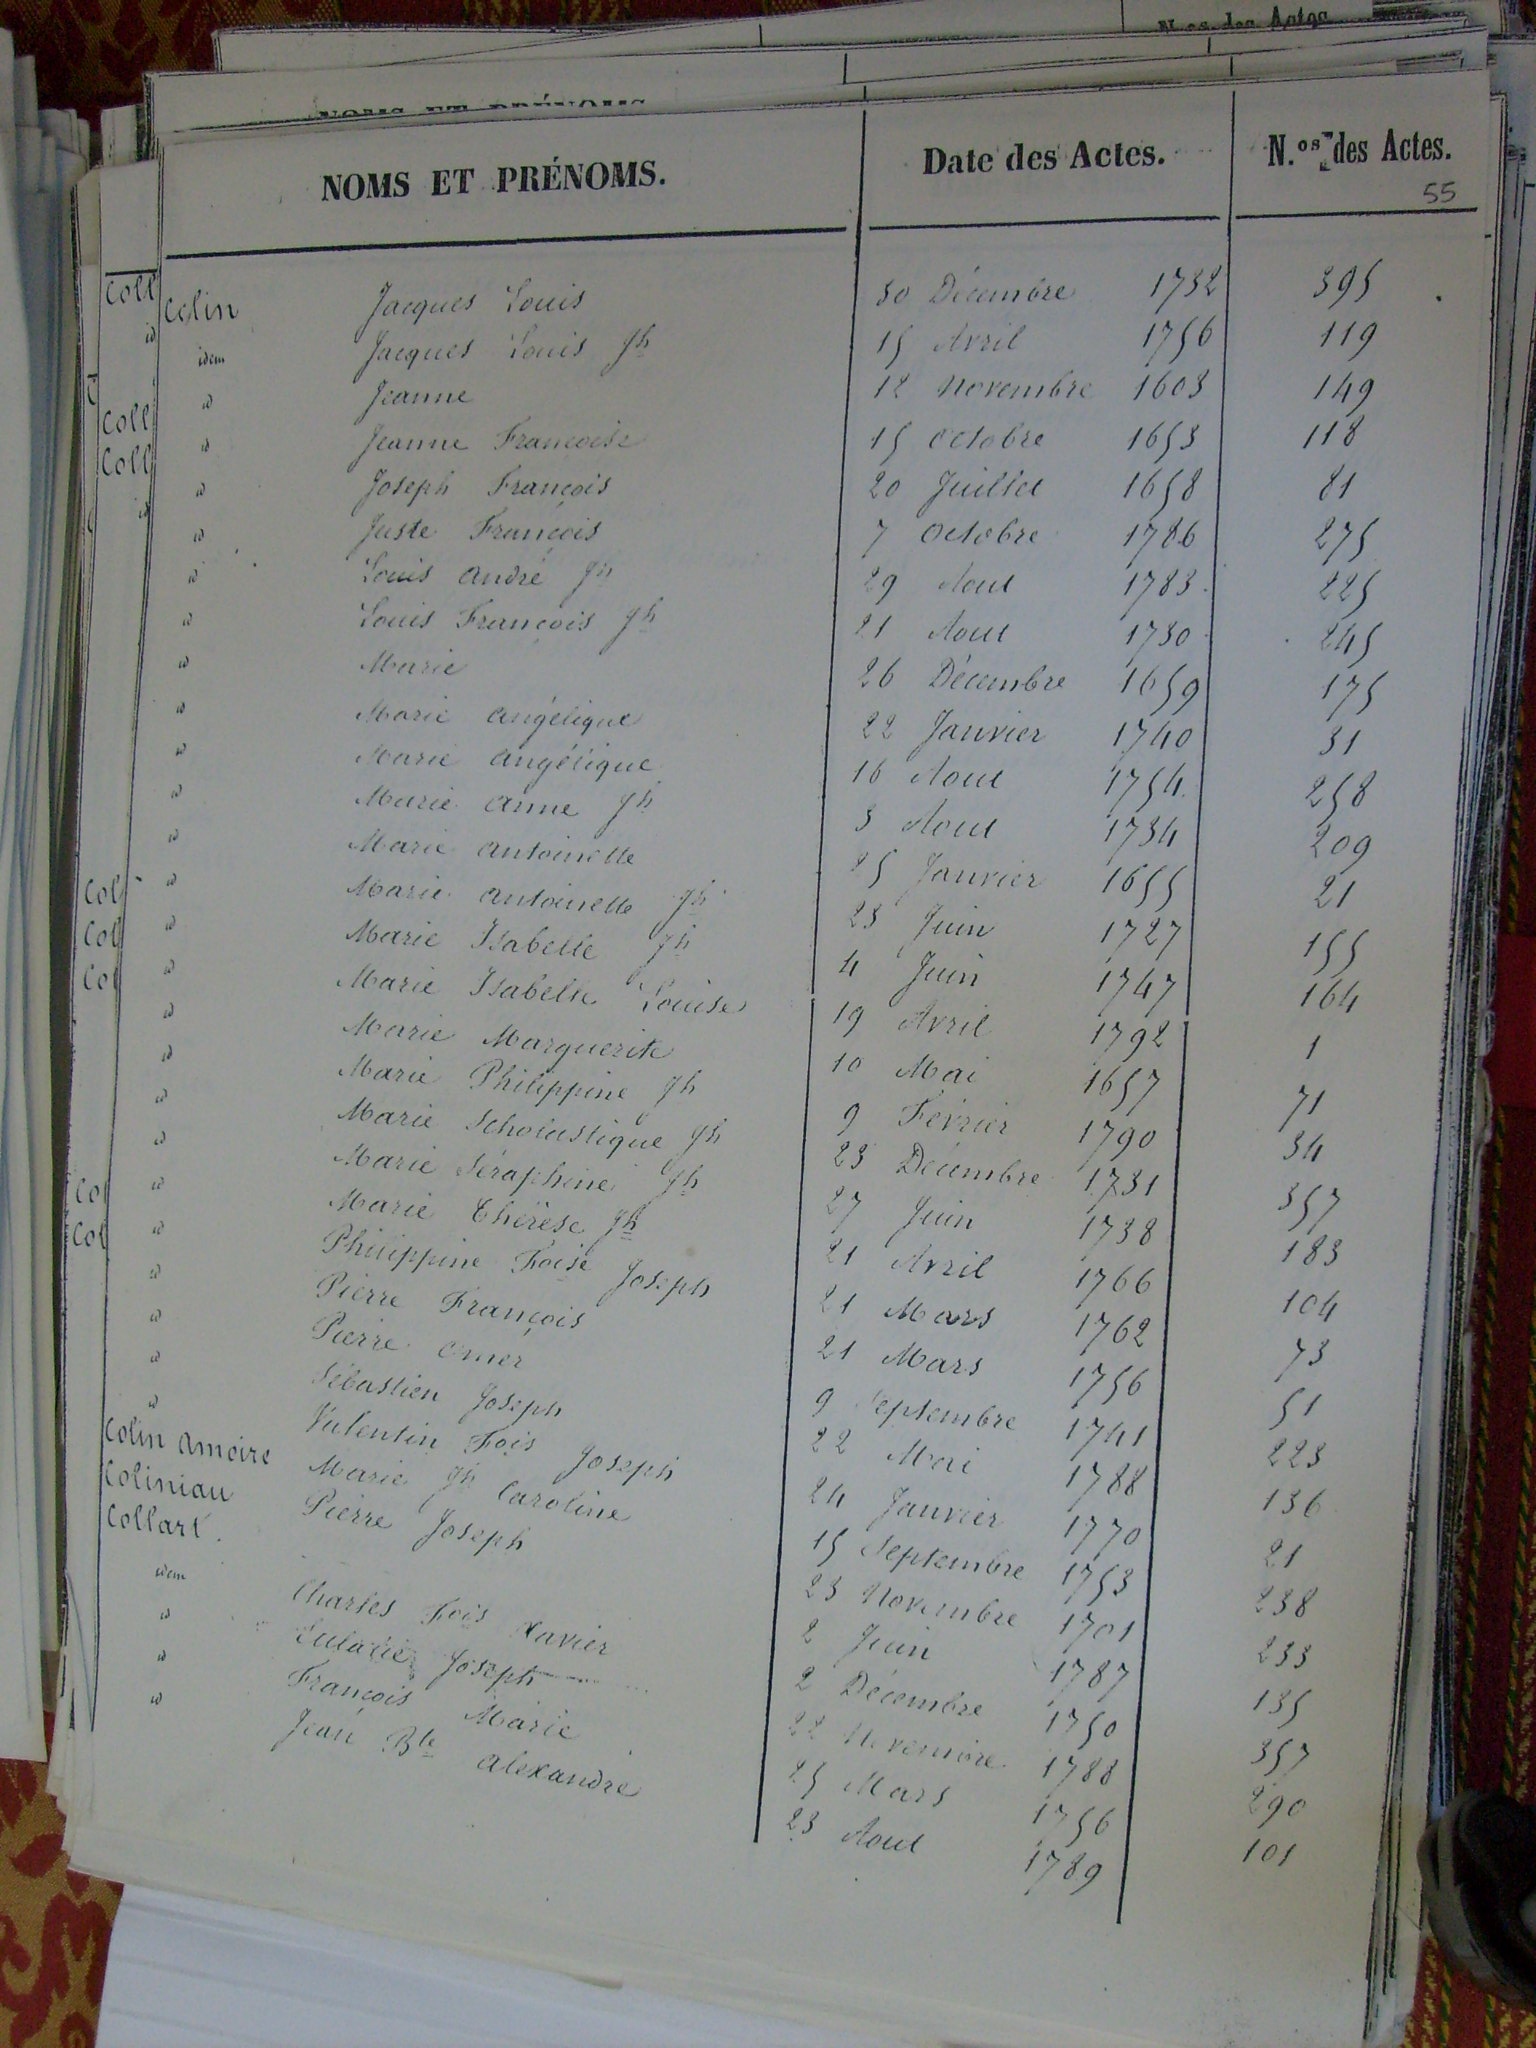 N.os des Actes
NOMS ET PRÉNOMS
NOMS ET PRÉNOMS. Date des Actes. N.os des Actes.
55
Colin Jacques Louis 30 Décembre 1732 395
idem Jacques Louis Jh 15 Avril 1756 119
id Jeanne 12 Novembre 1603 149
id Jeanne Françoise 15 Octobre 1653 118
id Joseph François 20 Juillet 1658 81
id Juste François 7 Octobre 1786 275
id Louis André Jh 29 Aout 1783 225
id Louis François Jh 21 Aout 1730 245
id Marie 26 Décembre 1659 175
id Marie Angélique 22 Janvier 1740 31
id Marie Angélique 16 Aout 1754 258
id Marie Anne Jh 3 Aout 1734 209
id Marie Antoinette 25 Janvier 1655 21
id Marie Antoinette Jh 23 Juin 1727 155
id Marie Isabelle Jh 4 Juin 1747 164
id Marie Isabelle Louise 19 Avril 1792 1
id Marie Marguerite 10 Mai 1657 71
id Marie Philippine Jh 9 Février 1790 34
id Marie Scholastique Jh 23 Décembre 1731 357
id Marie Séraphine Jh 27 Juin 1738 183
id Marie Thérèse Jh 21 Avril 1766 104
id Philippine Foise Joseph 21 Mars 1762 73
id Pierre François 21 Mars 1756 51
id Pierre Omer 9 Septembre 1741 223
id Sébastien Joseph 22 Mai 1788 136
id Valentin Fois Joseph 24 Janvier 1770 21
Colin Amoire Marie Jh Caroline 15 Septembre 1753 238
Coliniau Pierre Joseph 23 Novembre 1701 233
Collart. 2 Juin 1787 135
idem Charles Fois Xavier 2 Décembre 1750 357
id Eulalie Joseph 22 Novembre 1788 290
id François Marie 25 Mars 1756 101
id Jean Bte Alexandre 23 Aout 1789